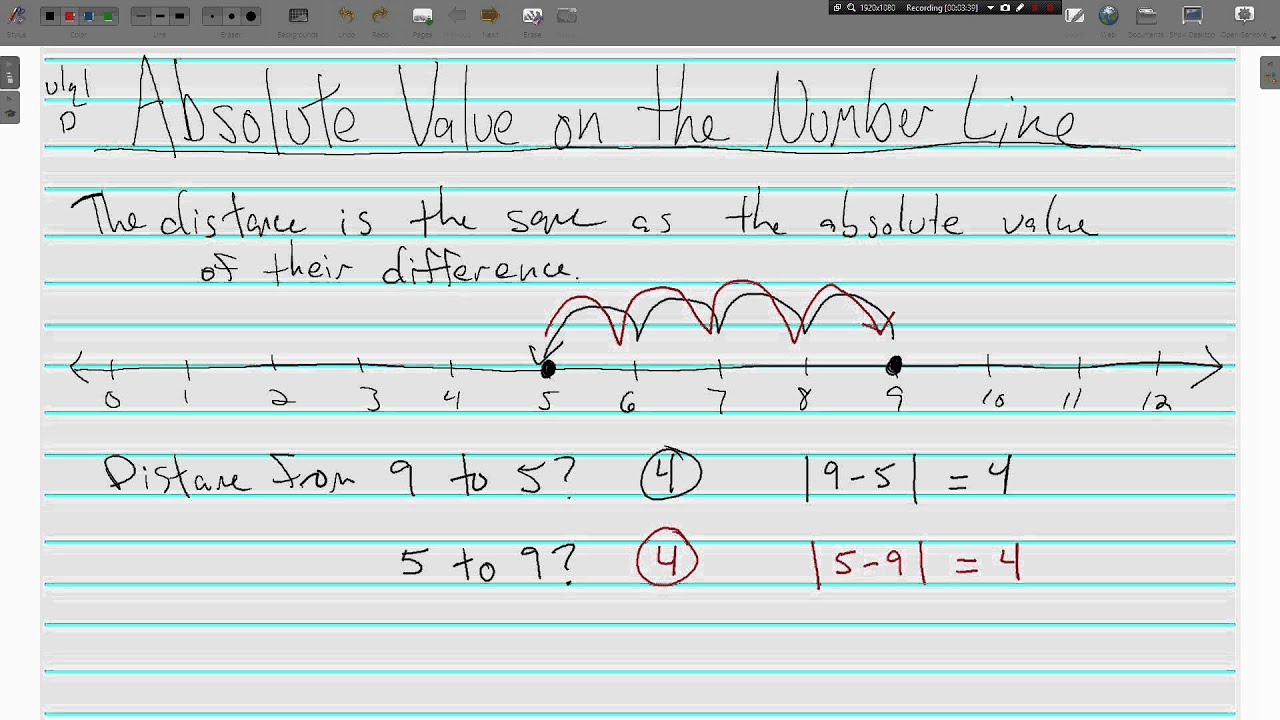 1920x1080 Recording [00:03:39]
Style Color Line Eraser Backgrounds Undo Redo Pages Previous Next Erase Web Documents Show Desktop
Absolute Value on the Number Line
The distance is the same as the absolute value
of their difference.
0 1 2 3 4 5 6 7 8 9 10 11 12
Distance from 9 to 5? 4 |9-5| = 4
5 to 9? 4 |5-9| = 4